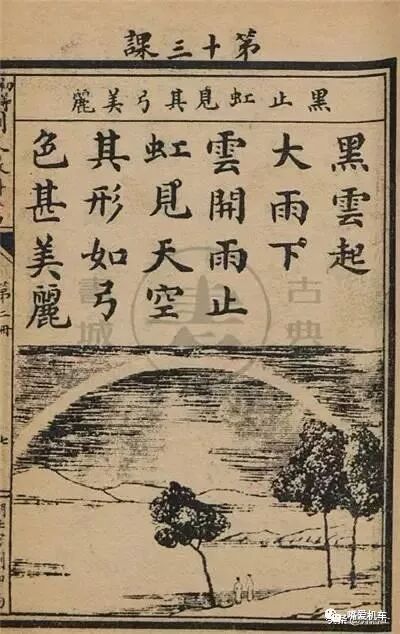 第十三課
黑止虹見其弓美麗
黑雲起
大雨下
雲開雨止
虹見天空
其形如弓
色甚美麗
第二冊
七
古典
書城
嘴爱机车